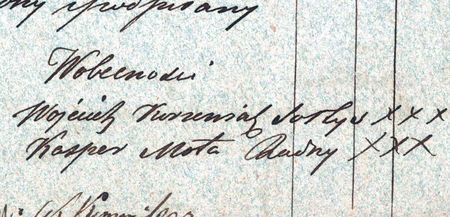 podpisany
Wobecnośći
Wojciech Korzeniak x x x
Kasper Mota Radny x x x